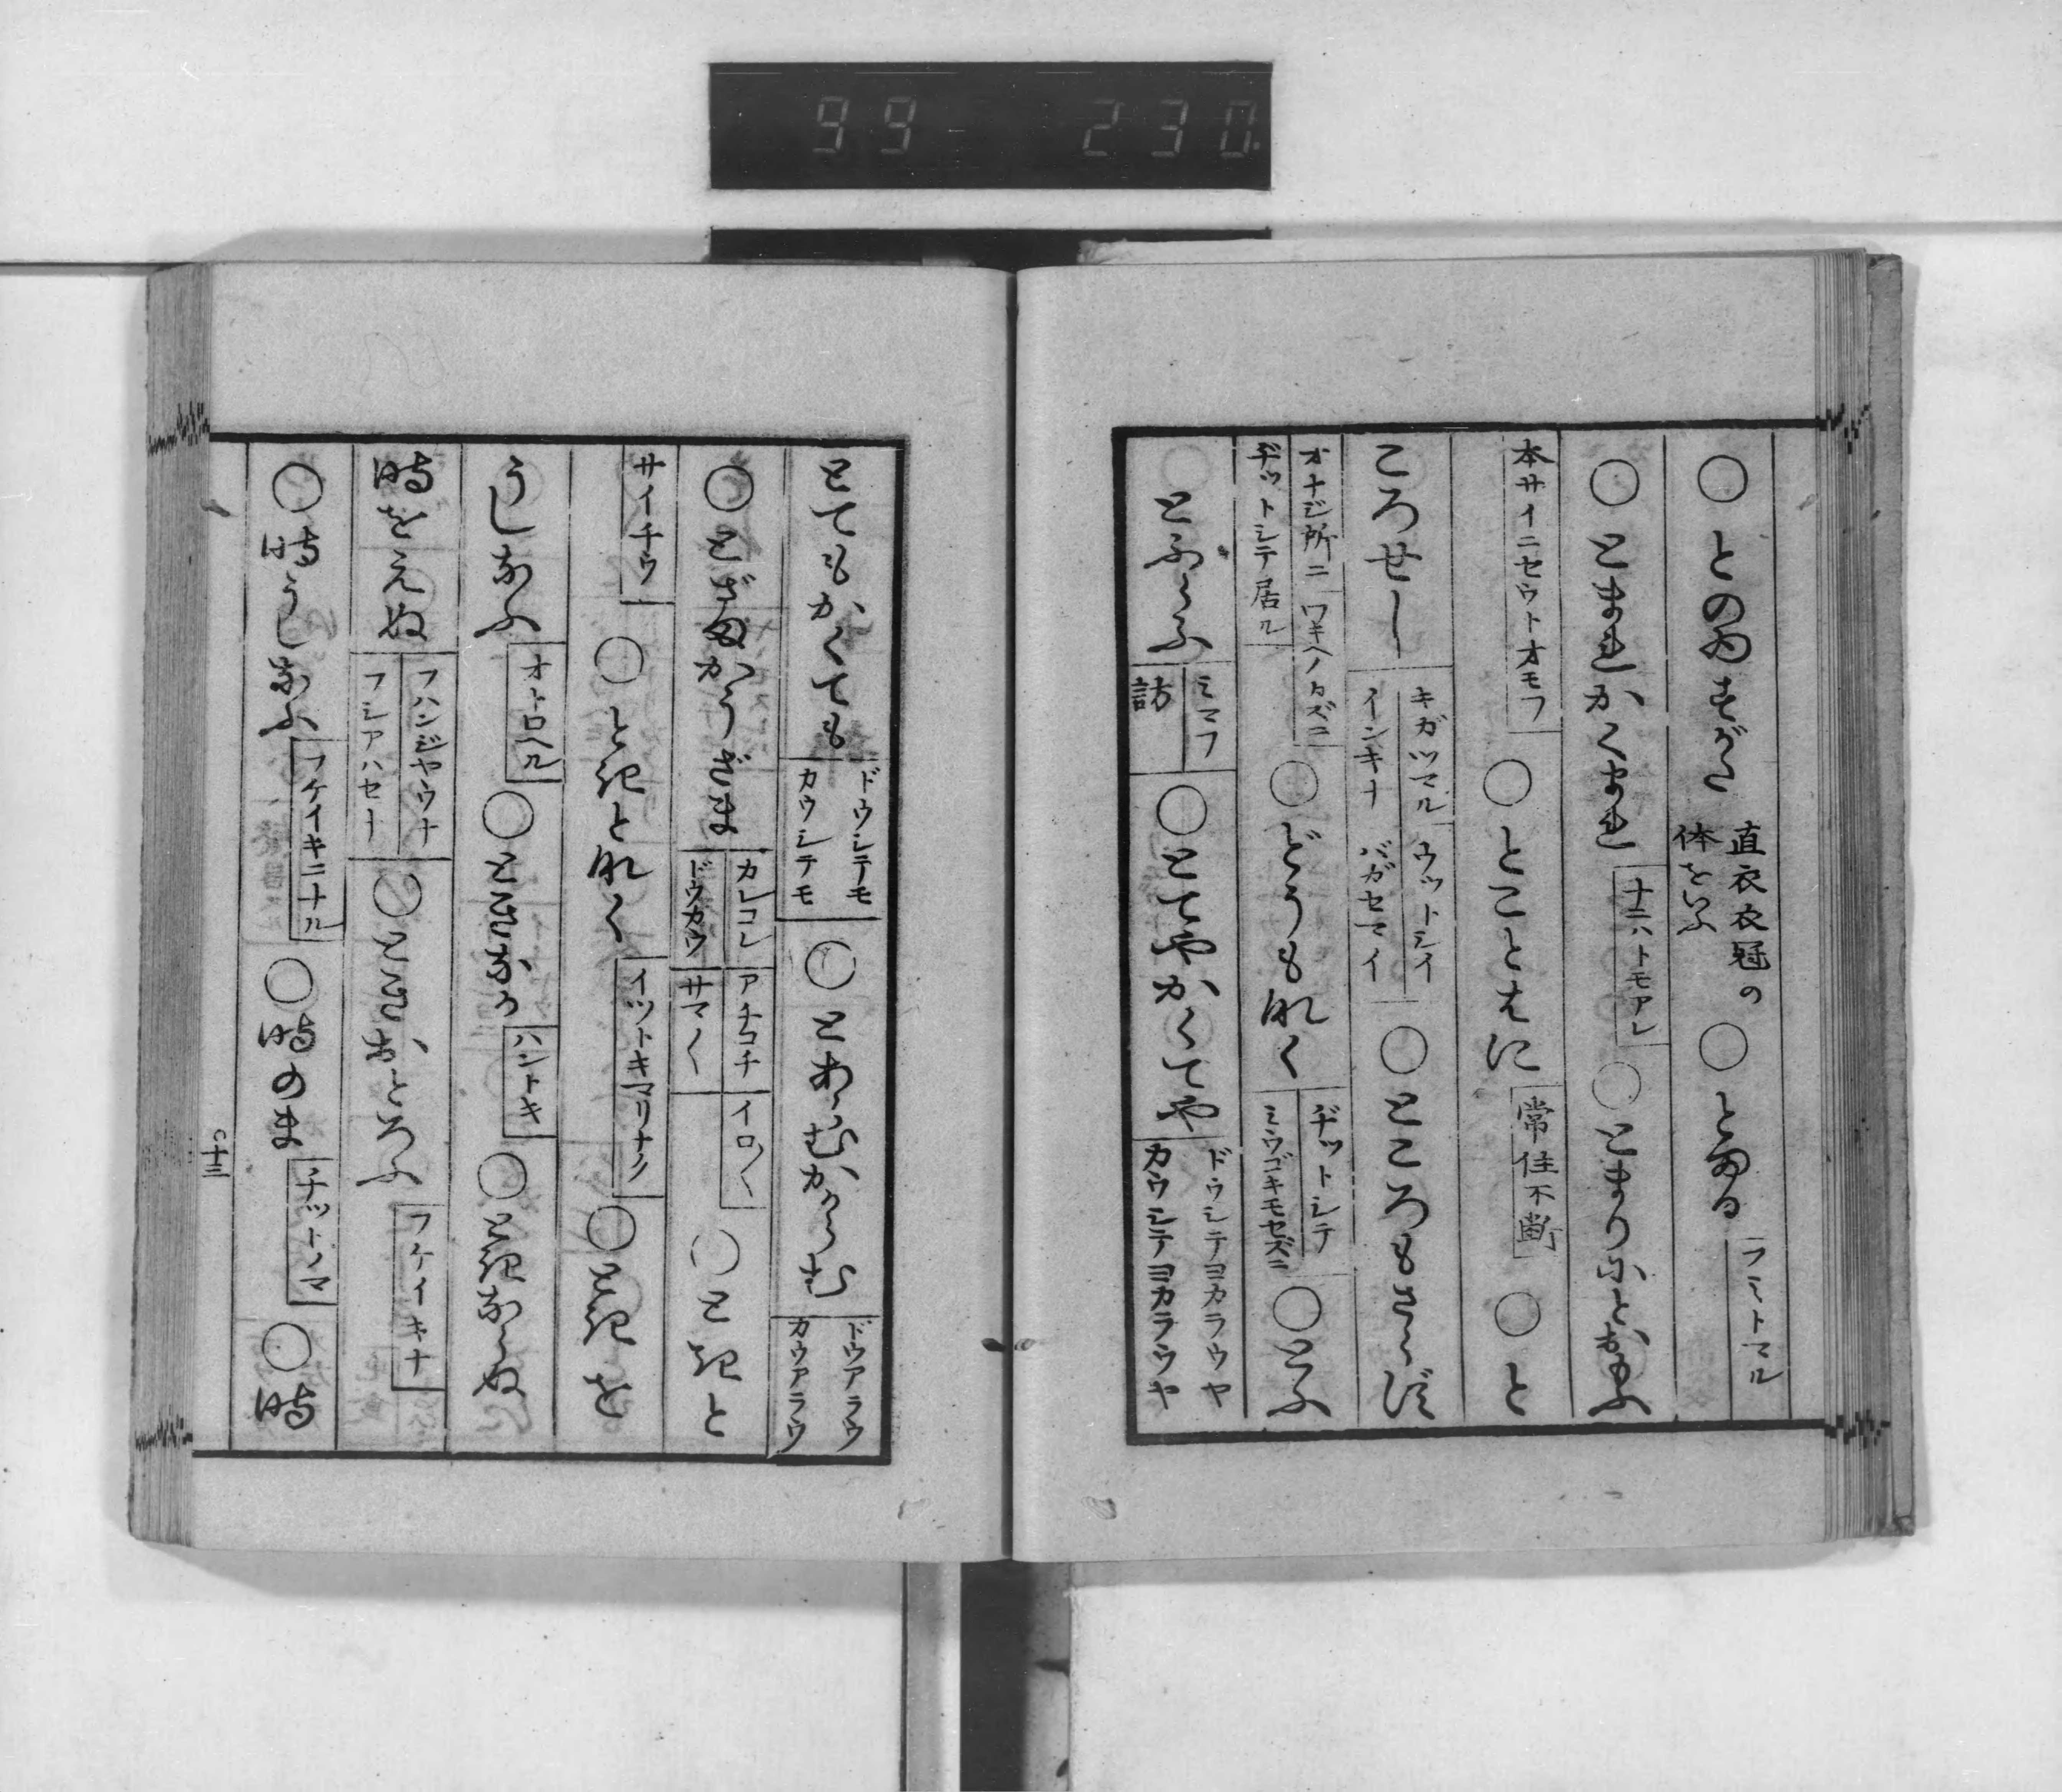 99 230.
○とのゐすがた 直衣衣冠の
体をいふ ○とゐる フミトマル
○とまれかくまれ ナニハトモアレ ○とまりにとおもふ
本サイニセウトオモフ ○とことはに 常住不断 ○と
ころせし キガツマル ウットシイ
インキナ バガセマイ ○ところもさらず
オナジ所ニ ワキヘノカズニ
ヂットシテ居ル ○どうもなく ヂットシテ
ミウゴキモセズニ ○とふ
とふらふ ミマフ
訪 ○とてやかくてや ドウシテヨカラウヤ
カウシテヨカラウヤ
とてもかくても ドウシテモ
カウシテモ ○とあらむかゝらむ ドウアラウ
カウアラウ
○とざまかうざま カレコレ
ドウカウ アチコチ
サマ〱 イロ〱 ○ときと
サイチウ ○ときとなく イツトキマリナク ○ときを
うしなふ オトロヘル ○ときなか ハントキ ○ときならぬ
時をえぬ フハンジヤウナ
フシアハセナ ○ときおとろふ フケイキナ
○時うしなふ フケイキニナル ○時のま チットノマ ○時
○十三